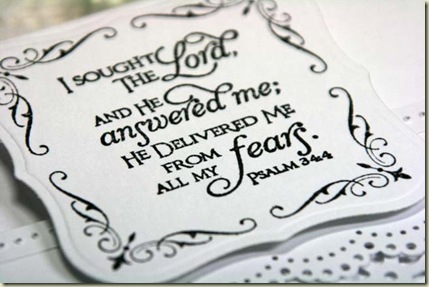 I SOUGHT
THE Lord,
AND HE
answered me;
HE DELIVERED ME
FROM
ALL MY fears.
PSALM 34:4